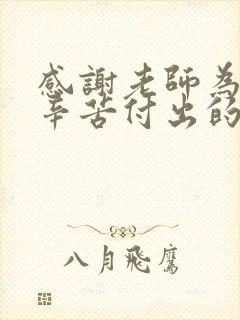 感謝老師為
辛苦付出的
八月飛鷹